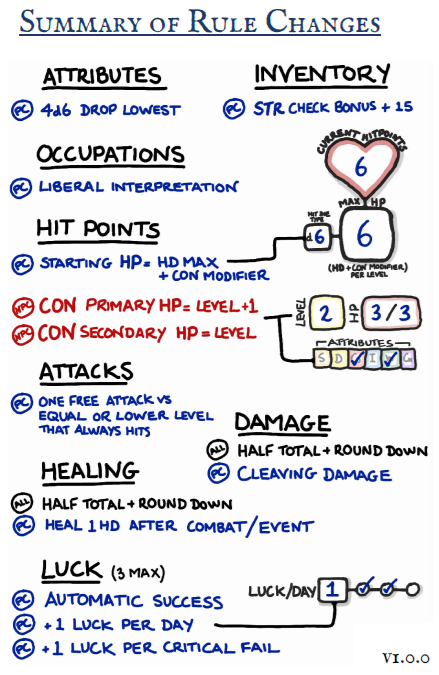 Summary of Rule Changes
ATTRIBUTES
PC 4d6 DROP LOWEST
INVENTORY
PC STR CHECK BONUS + 15
OCCUPATIONS
PC LIBERAL INTERPRETATION
CURRENT HITPOINTS
6
MAX HP
HIT DIE TYPE
d6
6
(HD + CON MODIFIER)
PER LEVEL
HIT POINTS
PC STARTING HP = HD MAX
+ CON MODIFIER
NPC CON PRIMARY HP = LEVEL + 1
NPC CON SECONDARY HP = LEVEL
LEVEL 2 HP 3/3
ATTRIBUTES
S D I C
ATTACKS
PC ONE FREE ATTACK VS
EQUAL OR LOWER LEVEL
THAT ALWAYS HITS
DAMAGE
ALL HALF TOTAL + ROUND DOWN
PC CLEAVING DAMAGE
HEALING
ALL HALF TOTAL + ROUND DOWN
PC HEAL 1HD AFTER COMBAT/EVENT
LUCK (3 MAX)
PC AUTOMATIC SUCCESS
PC +1 LUCK PER DAY
PC +1 LUCK PER CRITICAL FAIL
LUCK/DAY 1
V1.0.0